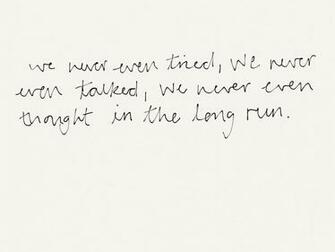 we never even tried, we never
even talked, we never even
thought in the long run.